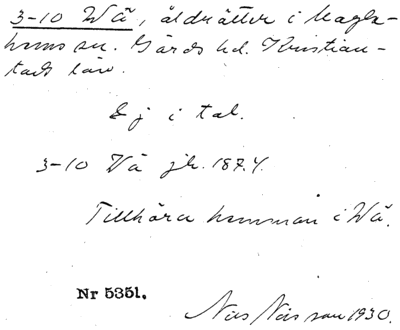 3-10 Wä, åldrätter i Magle-
hems sn. Gärds hd. Kristian-
stads län.
Ej i tal.
3-10 Vä jb. 1874.
Tillhöra hemman i Wä.
Nr 5351.
Nils Nilsson 1930.